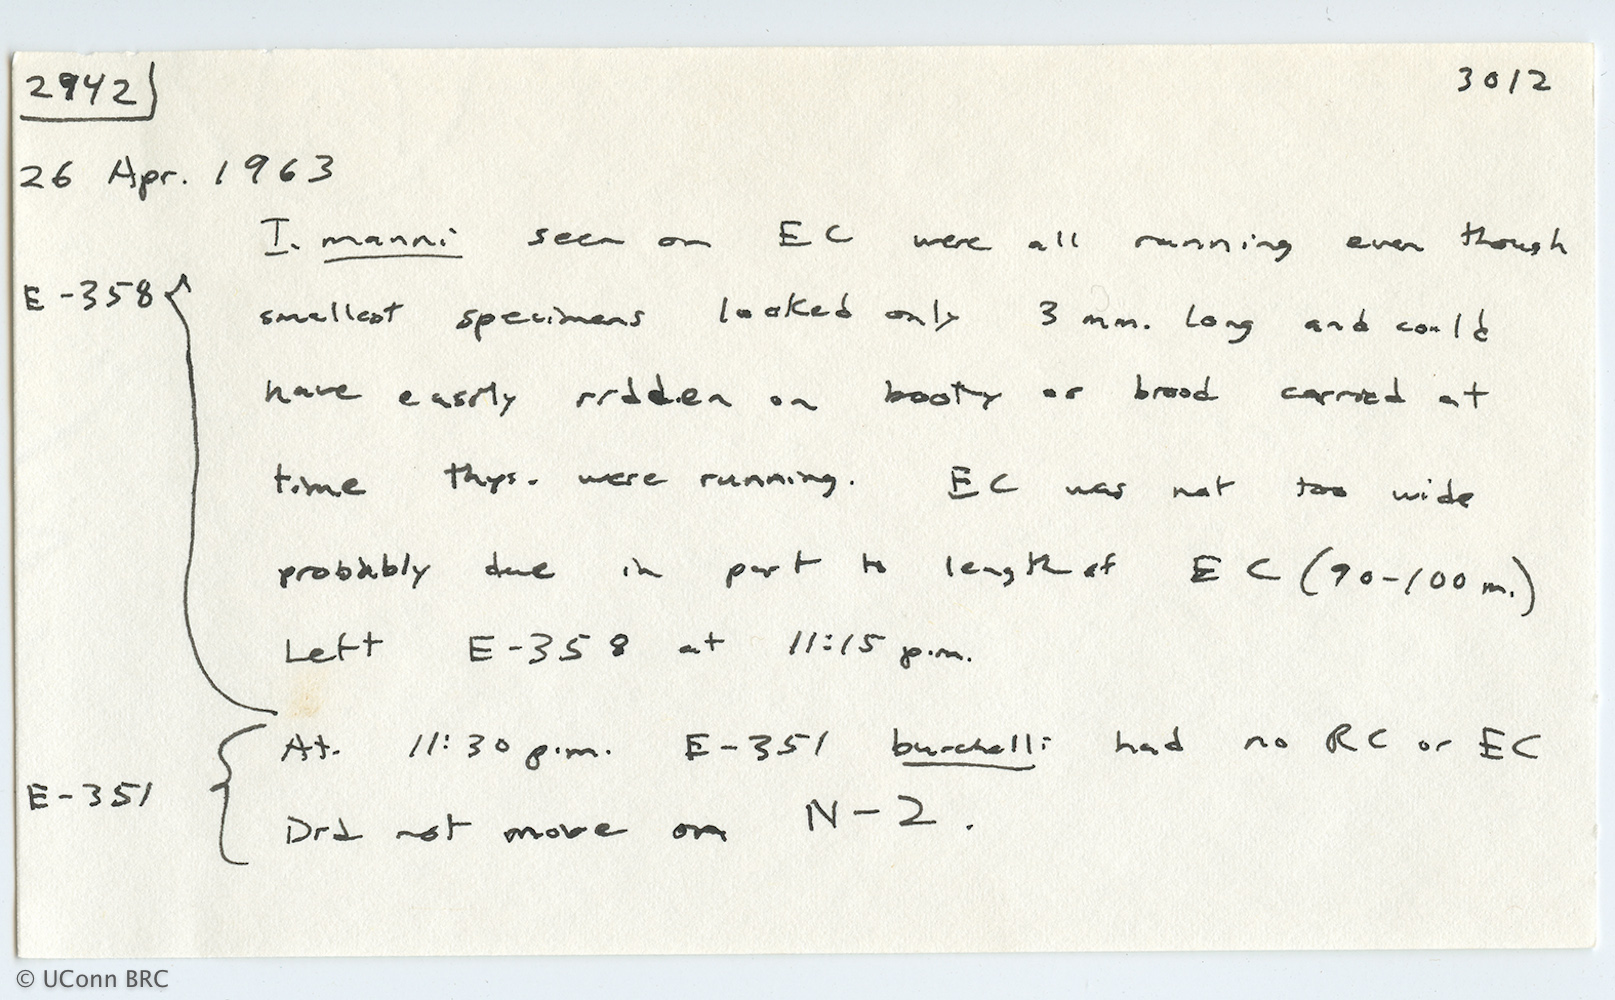 2942 3012
26 Apr. 1963
I. manni seen on EC were all running even though
E-358 smallest specimens looked only 3 mm. long and could
have easily ridden on booty or brood carried at
time thys. were running. EC was not too wide
probably due in part to length of EC (90-100 m.)
Left E-358 at 11:15 p.m.
At. 11:30 p.m. E-351 burchelli had no RC or EC
E-351 Did not move on N-2.
© UConn BRC